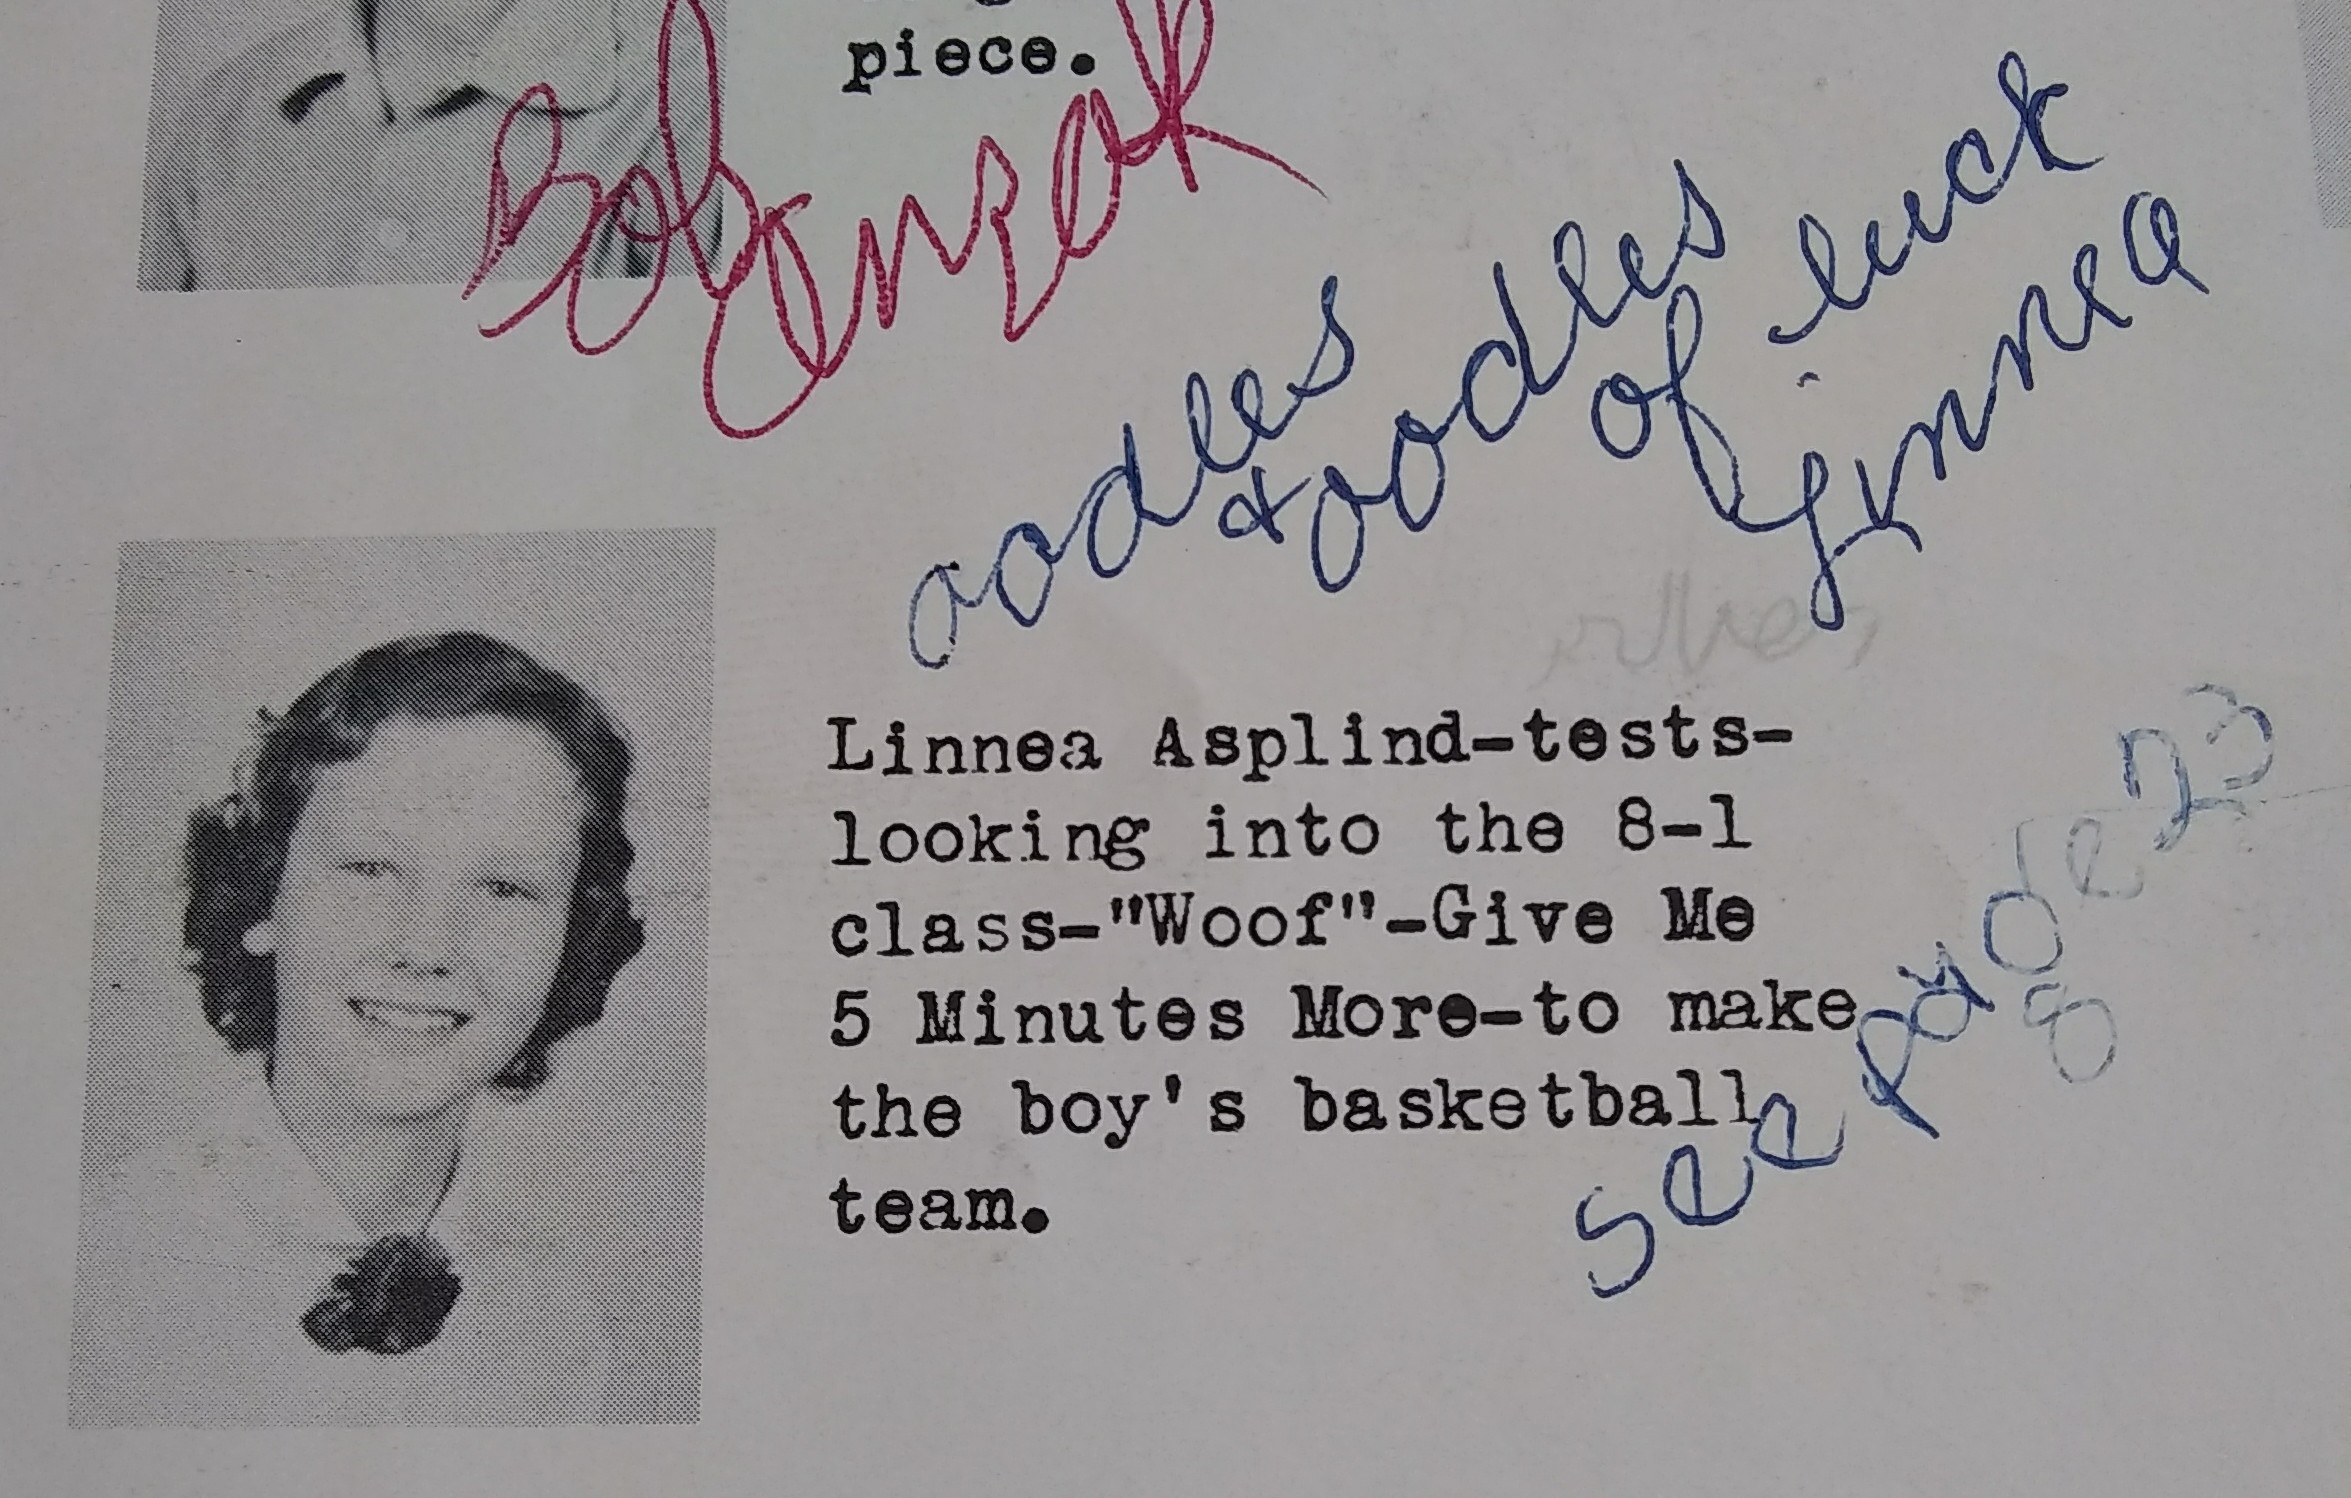 piece.
Bob
oodles
& oodles
of luck
Linnea
Linnea Asplind-tests-
looking into the 8-1
class-"Woof"-Give Me
5 Minutes More-to make
the boy's basketball
team.
see page 23